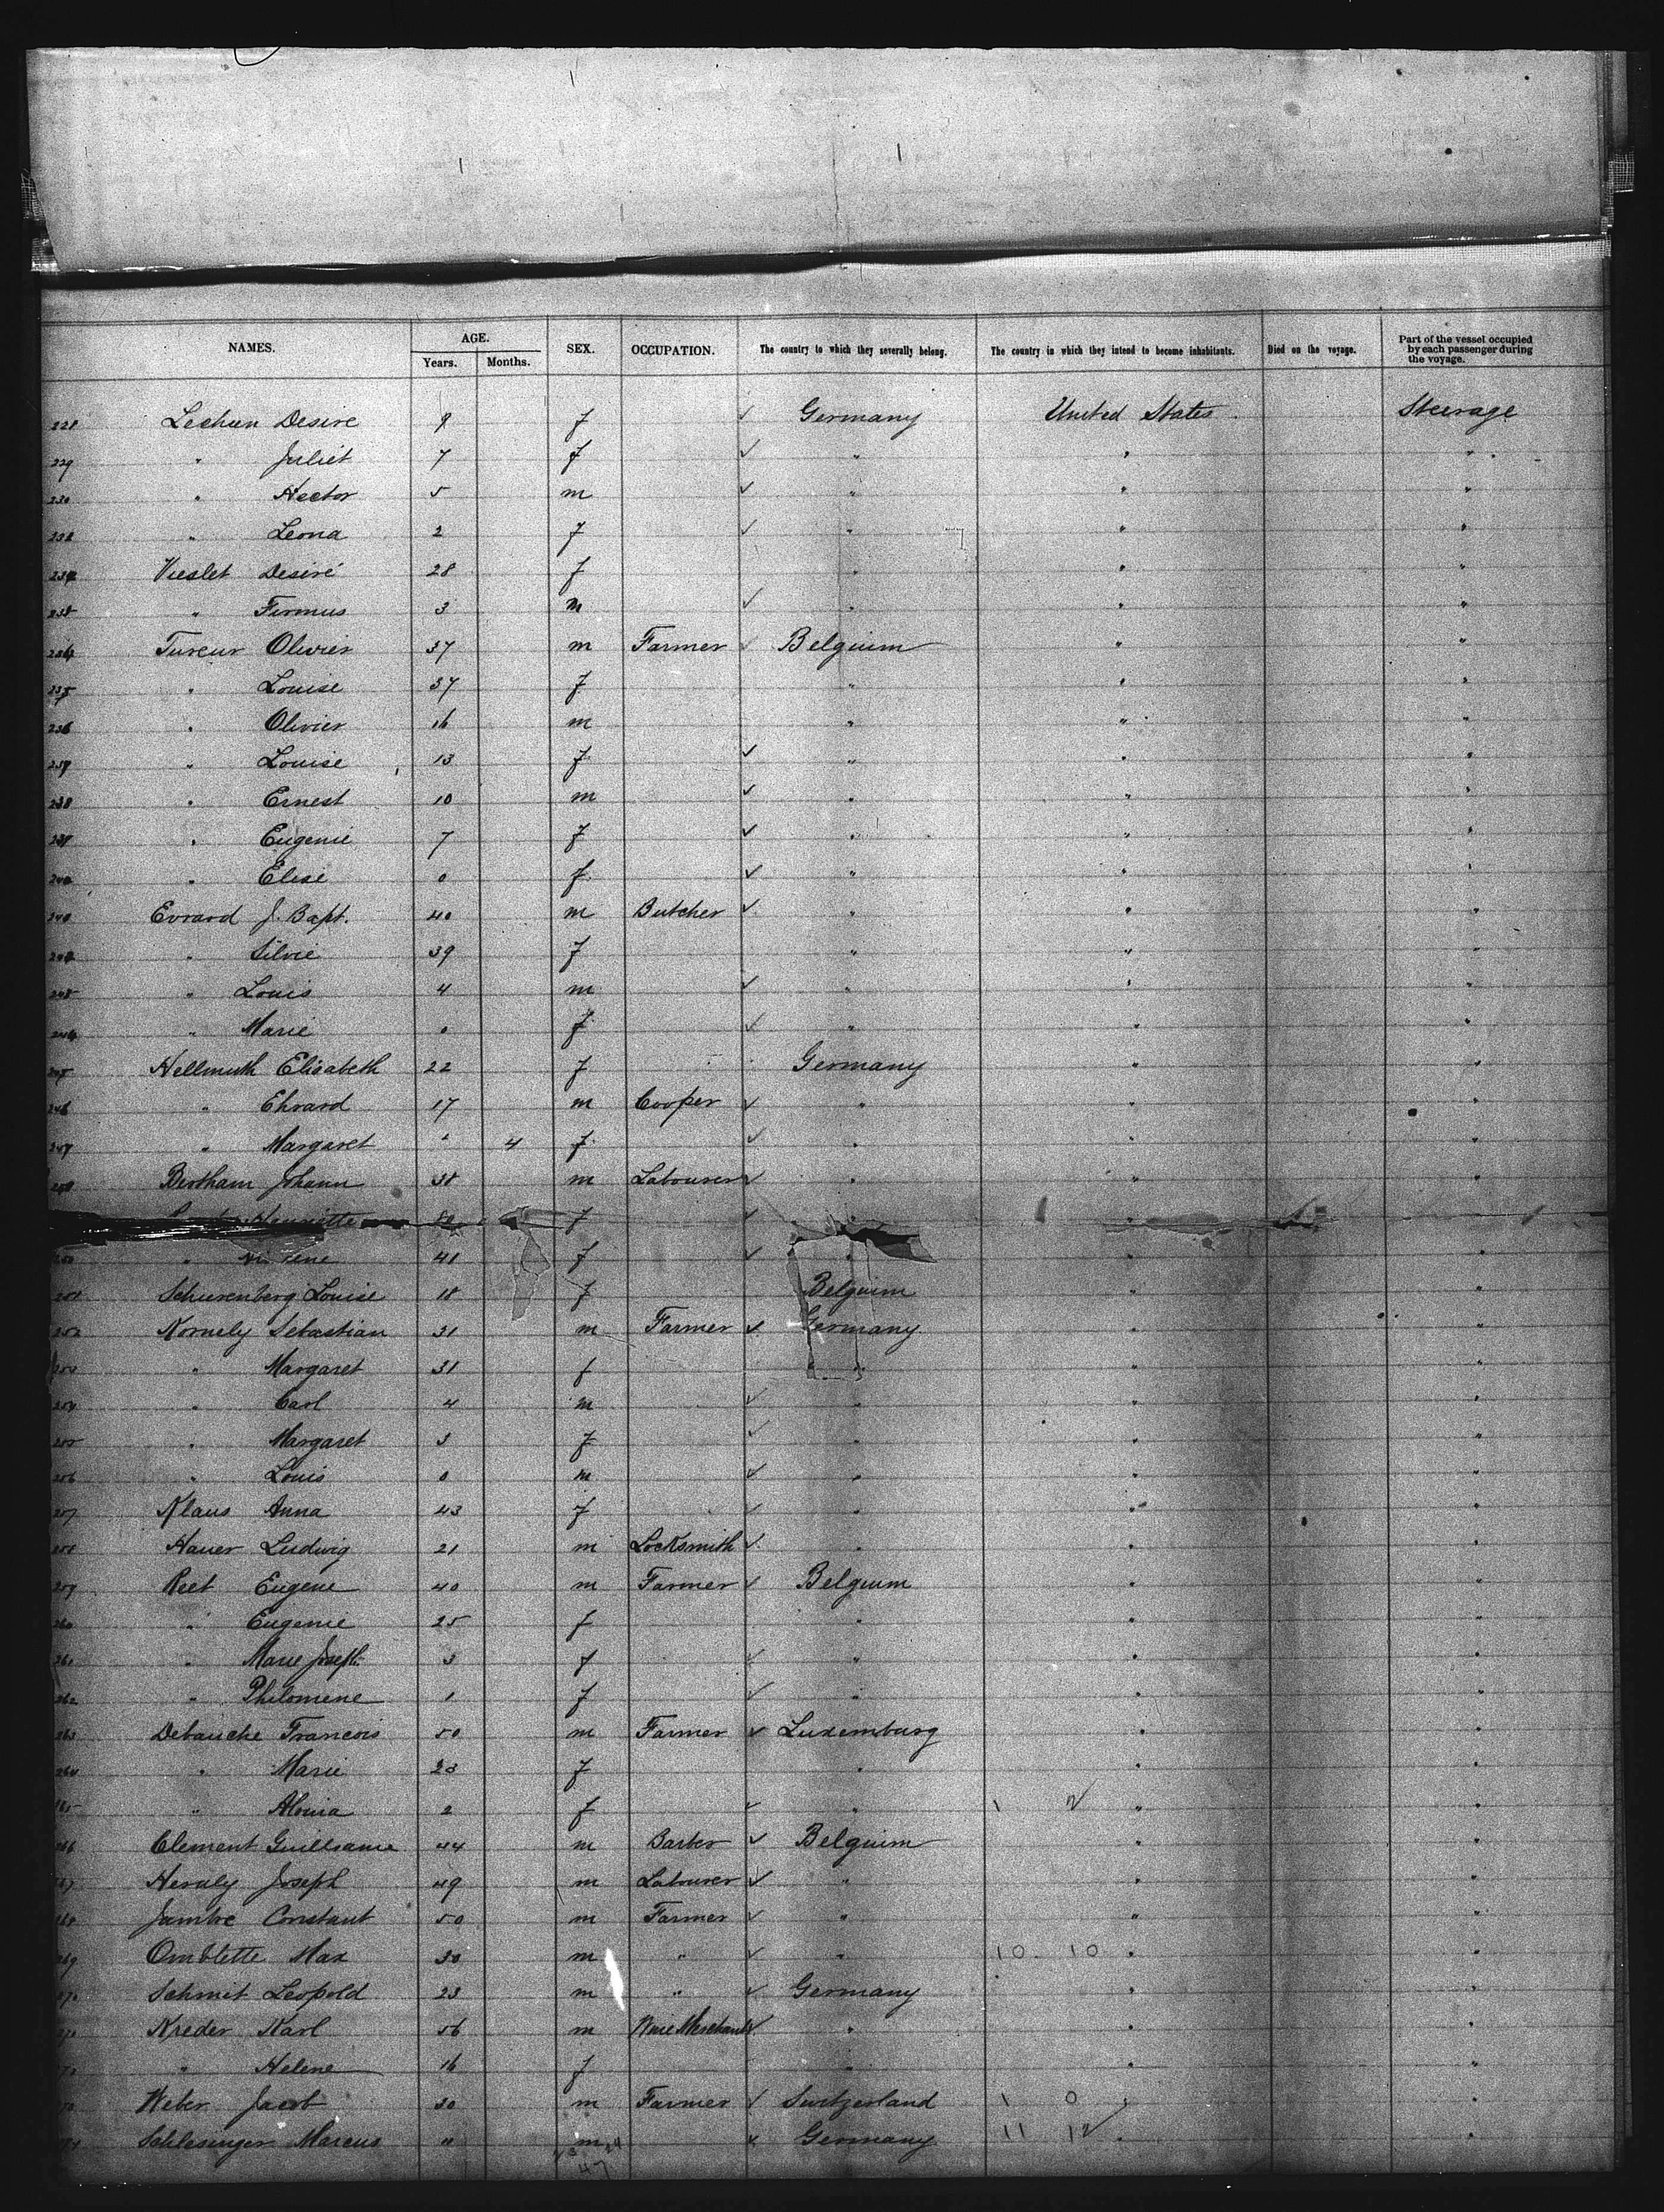 NAMES. AGE. SEX. OCCUPATION. The country to which they severally belong. The country in which they intend to become inhabitants. Died on the voyage. Part of the vessel occupied by each passenger during the voyage.
Years. Months.
228 Lechien Desire 9 f ✓ Germany United States Steerage
229 " Juliet 7 f ✓ " " "
230 " Hector 5 m ✓ " " "
" Leona 2 f ✓ " " "
Vieslet Desiré 28 f " " "
" Firmus 3 m ✓ " " "
234 Tureur Olivier 37 m Farmer ✓ Belguim " "
235 " Louise 37 f " " "
236 " Olivier 16 m " " "
237 " Louise 13 f ✓ " " "
238 " Ernest 10 m ✓ " " "
239 " Eugenie 7 f ✓ " " "
240 " Elise 0 f ✓ " " "
Evrard J. Bapt. 40 m Butcher ✓ " " "
" Silvie 39 f " " "
" Louis 4 m ✓ " " "
244 " Marie 0 f ✓ " " "
245 Hellmuth Elisabeth 22 f Germany " "
246 " Ehrard 17 m Cooper ✓ " " "
247 " Margaret " 4 f ✓ " " "
248 Bertham Johann 38 m Labourer ✓ " " "
Henriette f ✓ " "
250 " 41 f ✓ " " "
251 Schurenberg Louise 18 f Belguim " "
252 Kornely Sebastian 31 m Farmer ✓ Germany " "
253 " Margaret 31 f " " "
254 " Carl 4 m ✓ " " "
255 " Margaret 3 f ✓ " " "
256 " Louis 0 m ✓ " " "
257 Klaus Anna 43 f ✓ " " "
258 Hauer Ludwig 21 m Locksmith ✓ " " "
259 Reet Eugene 40 m Farmer ✓ Belguim " "
260 " Eugenie 25 f " " "
261 " Marie Joseph 3 f ✓ " " "
262 " Philomene 1 f ✓ " " "
263 Debauche Francois 50 m Farmer ✓ Luxemburg " "
264 " Marie 23 f " " "
265 " Alouia 2 f ✓ " 1 2 " "
266 Clement Guillaume 44 m Barber ✓ Belguim " "
267 Heraly Joseph 49 m Labourer ✓ " " "
268 Jambe Constant 50 m Farmer ✓ " " "
269 Omblette Max 30 m " ✓ " 10 10 " "
270 Schmit Leopold 23 m " ✓ Germany " "
271 Kreder Karl 56 m Wine Merchant ✓ " " "
272 " Helene 16 f " " "
273 Weber Jacob 30 m Farmer ✓ Switzerland 1 0 " "
274 Schlesinger Marcus " m ✓ Germany 11 12 " "
47